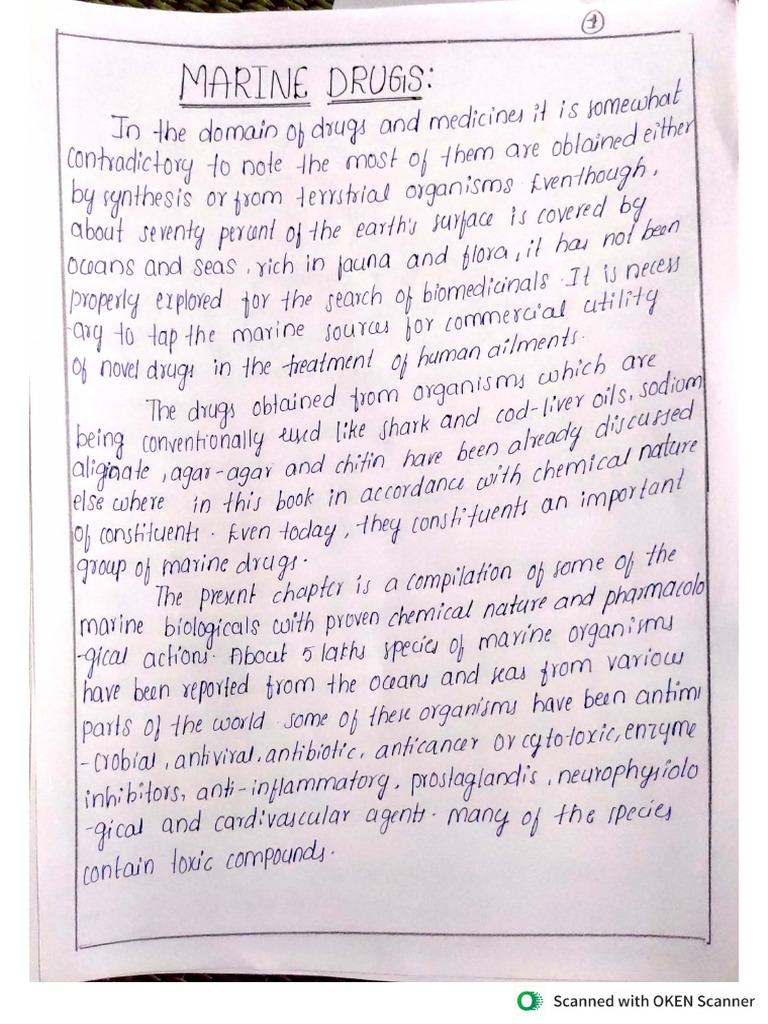 1
MARINE DRUGS:
In the domain of drugs and medicines it is somewhat
contradictory to note the most of them are obtained either
by synthesis or from terrstrial organisms Eventhough,
about seventy percent of the earth's surface is covered by
oceans and seas, rich in fauna and flora, it has not been
properly explored for the search of biomedicinals. It is necess
-ary to tap the marine sources for commercial utility
of novel drugs in the treatment of human ailments.
The drugs obtained from organisms which are
being conventionally used like shark and cod-liver oils, sodium
aliginate, agar-agar and chitin have been already discussed
else where in this book in accordance with chemical nature
of constituents. Even today, they constituents an important
group of marine drugs.
The present chapter is a compilation of some of the
marine biologicals with proven chemical nature and pharmacolo
-gical actions. About 5 lakhs species of marine organisms
have been reported from the oceans and seas from various
parts of the world some of these organisms have been antimi
-crobial, antiviral, antibiotic, anticancer or cytotoxic, enzyme
inhibitors, anti-inflammatory, prostaglandis, neurophysiolo
-gical and cardivascular agents. Many of the species
contain toxic compounds.
Scanned with OKEN Scanner